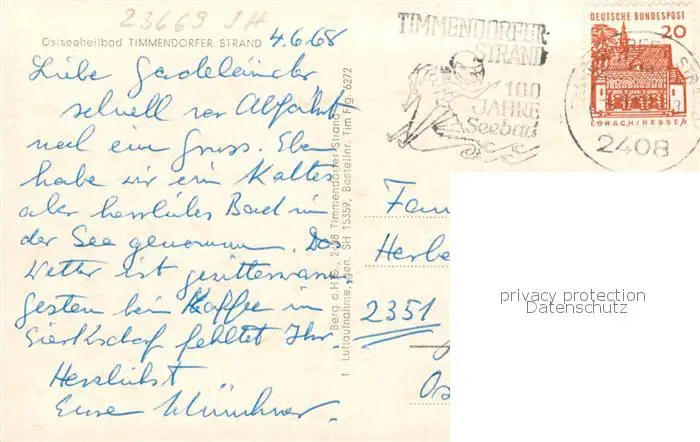 23669 SH
Ostseeheilbad TIMMENDORFER STRAND 4.6.68
Liebe Gadeländer
schnell vor Abfahrt
noch ein Gruss. Eben
habe wir ein kaltes
aber herrliches Bad in
der See genommen. Das
Wetter ist gewitterwarm
gestern beim Kaffee in
Sierksdorf fehltet Ihr.
Herzlichst
Eure Münchner.
Berg o.H.G., 2408 Timmendorfer Strand
Luftaufnahme, gen. SH 15359, Bestellnr. Tim Flg. 6272
TIMMENDORFER-
STRAND
100
JAHRE
Seebad
2408
DEUTSCHE BUNDESPOST
20
LORSCH/HESSEN
Fam
Herbe
2351
Os
privacy protection
Datenschutz